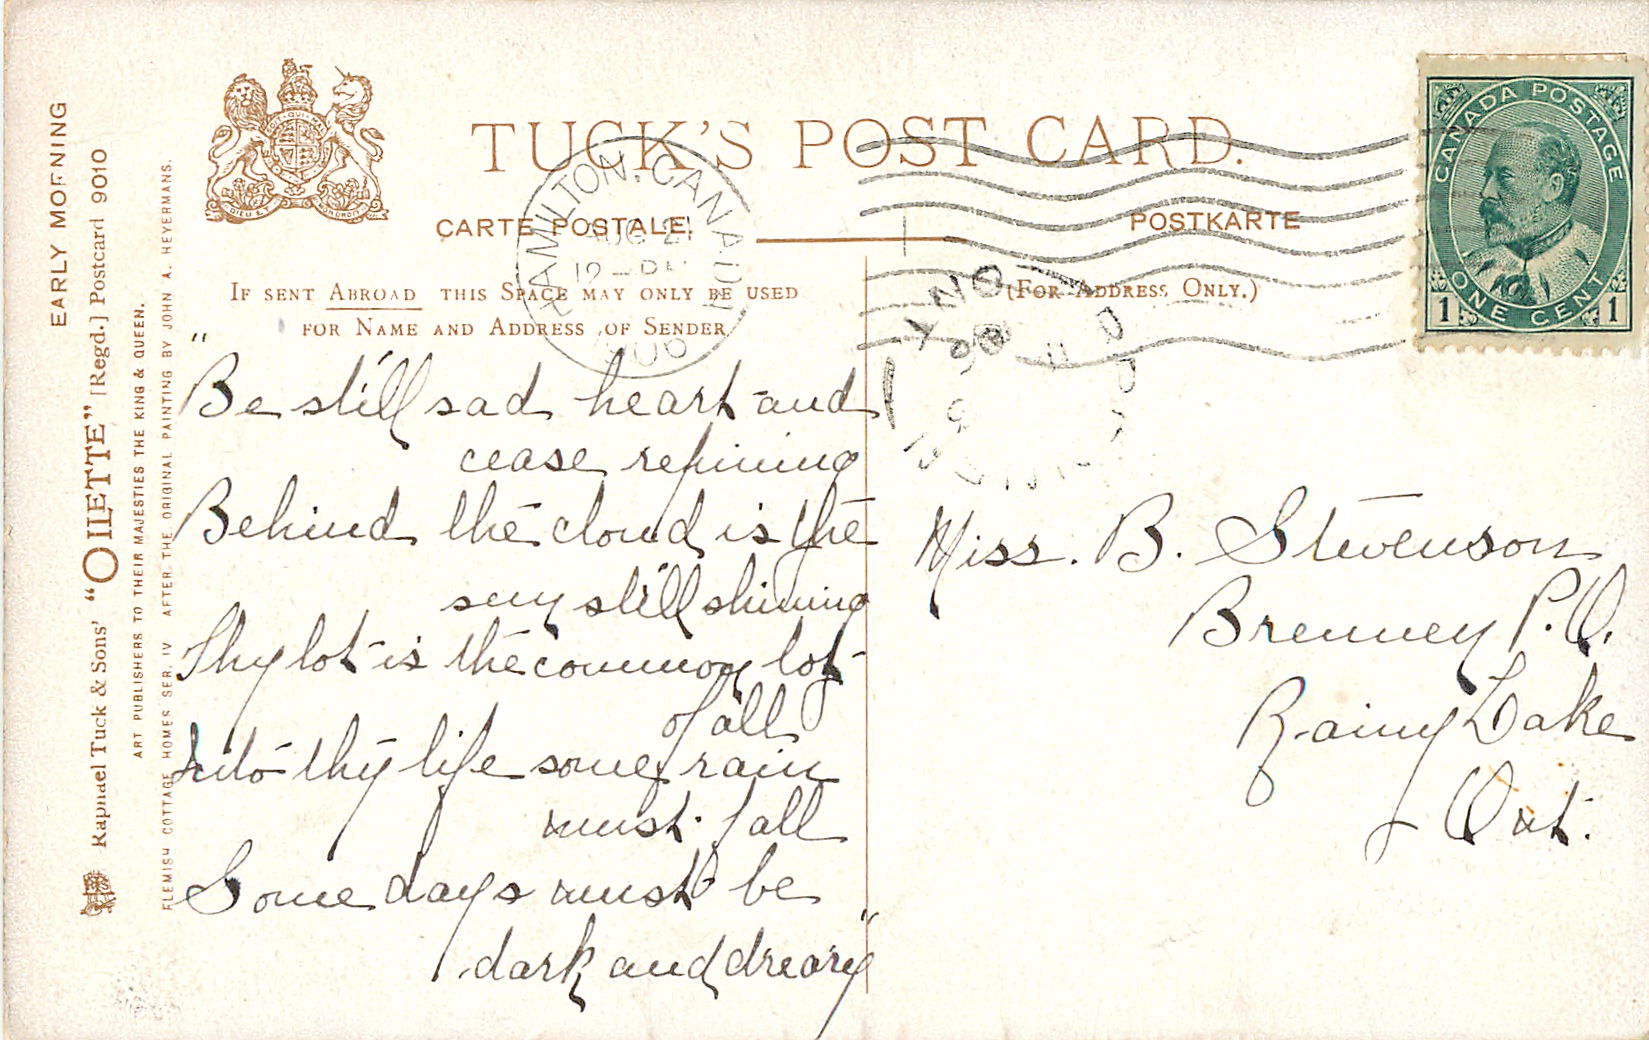 EARLY MORNING
Raphael Tuck & Sons' "OILETTE" [Regd.] Postcard 9010
ART PUBLISHERS TO THEIR MAJESTIES THE KING & QUEEN.
FLEMISH COTTAGE HOMES SER. IV AFTER THE ORIGINAL PAINTING BY JOHN A. HEYERMANS.
TUCK'S POST CARD.
CARTE POSTALE.
POSTKARTE
IF SENT ABROAD THIS SPACE MAY ONLY BE USED
FOR NAME AND ADDRESS OF SENDER
(FOR ADDRESS ONLY.)
HAMILTON, CANADA
AUG 21
12 –
1906
CANADA POSTAGE
ONE CENT
1 1
"Be still sad heart and
cease repining
Behind the cloud is the
suy still shining
Thy lot is the common lot
of all
Into thy life some rain
must fall
Some days must be
dark and dreary"
Miss. B. Stevenson
Brenney P.O.
Rainy Lake
Ont.